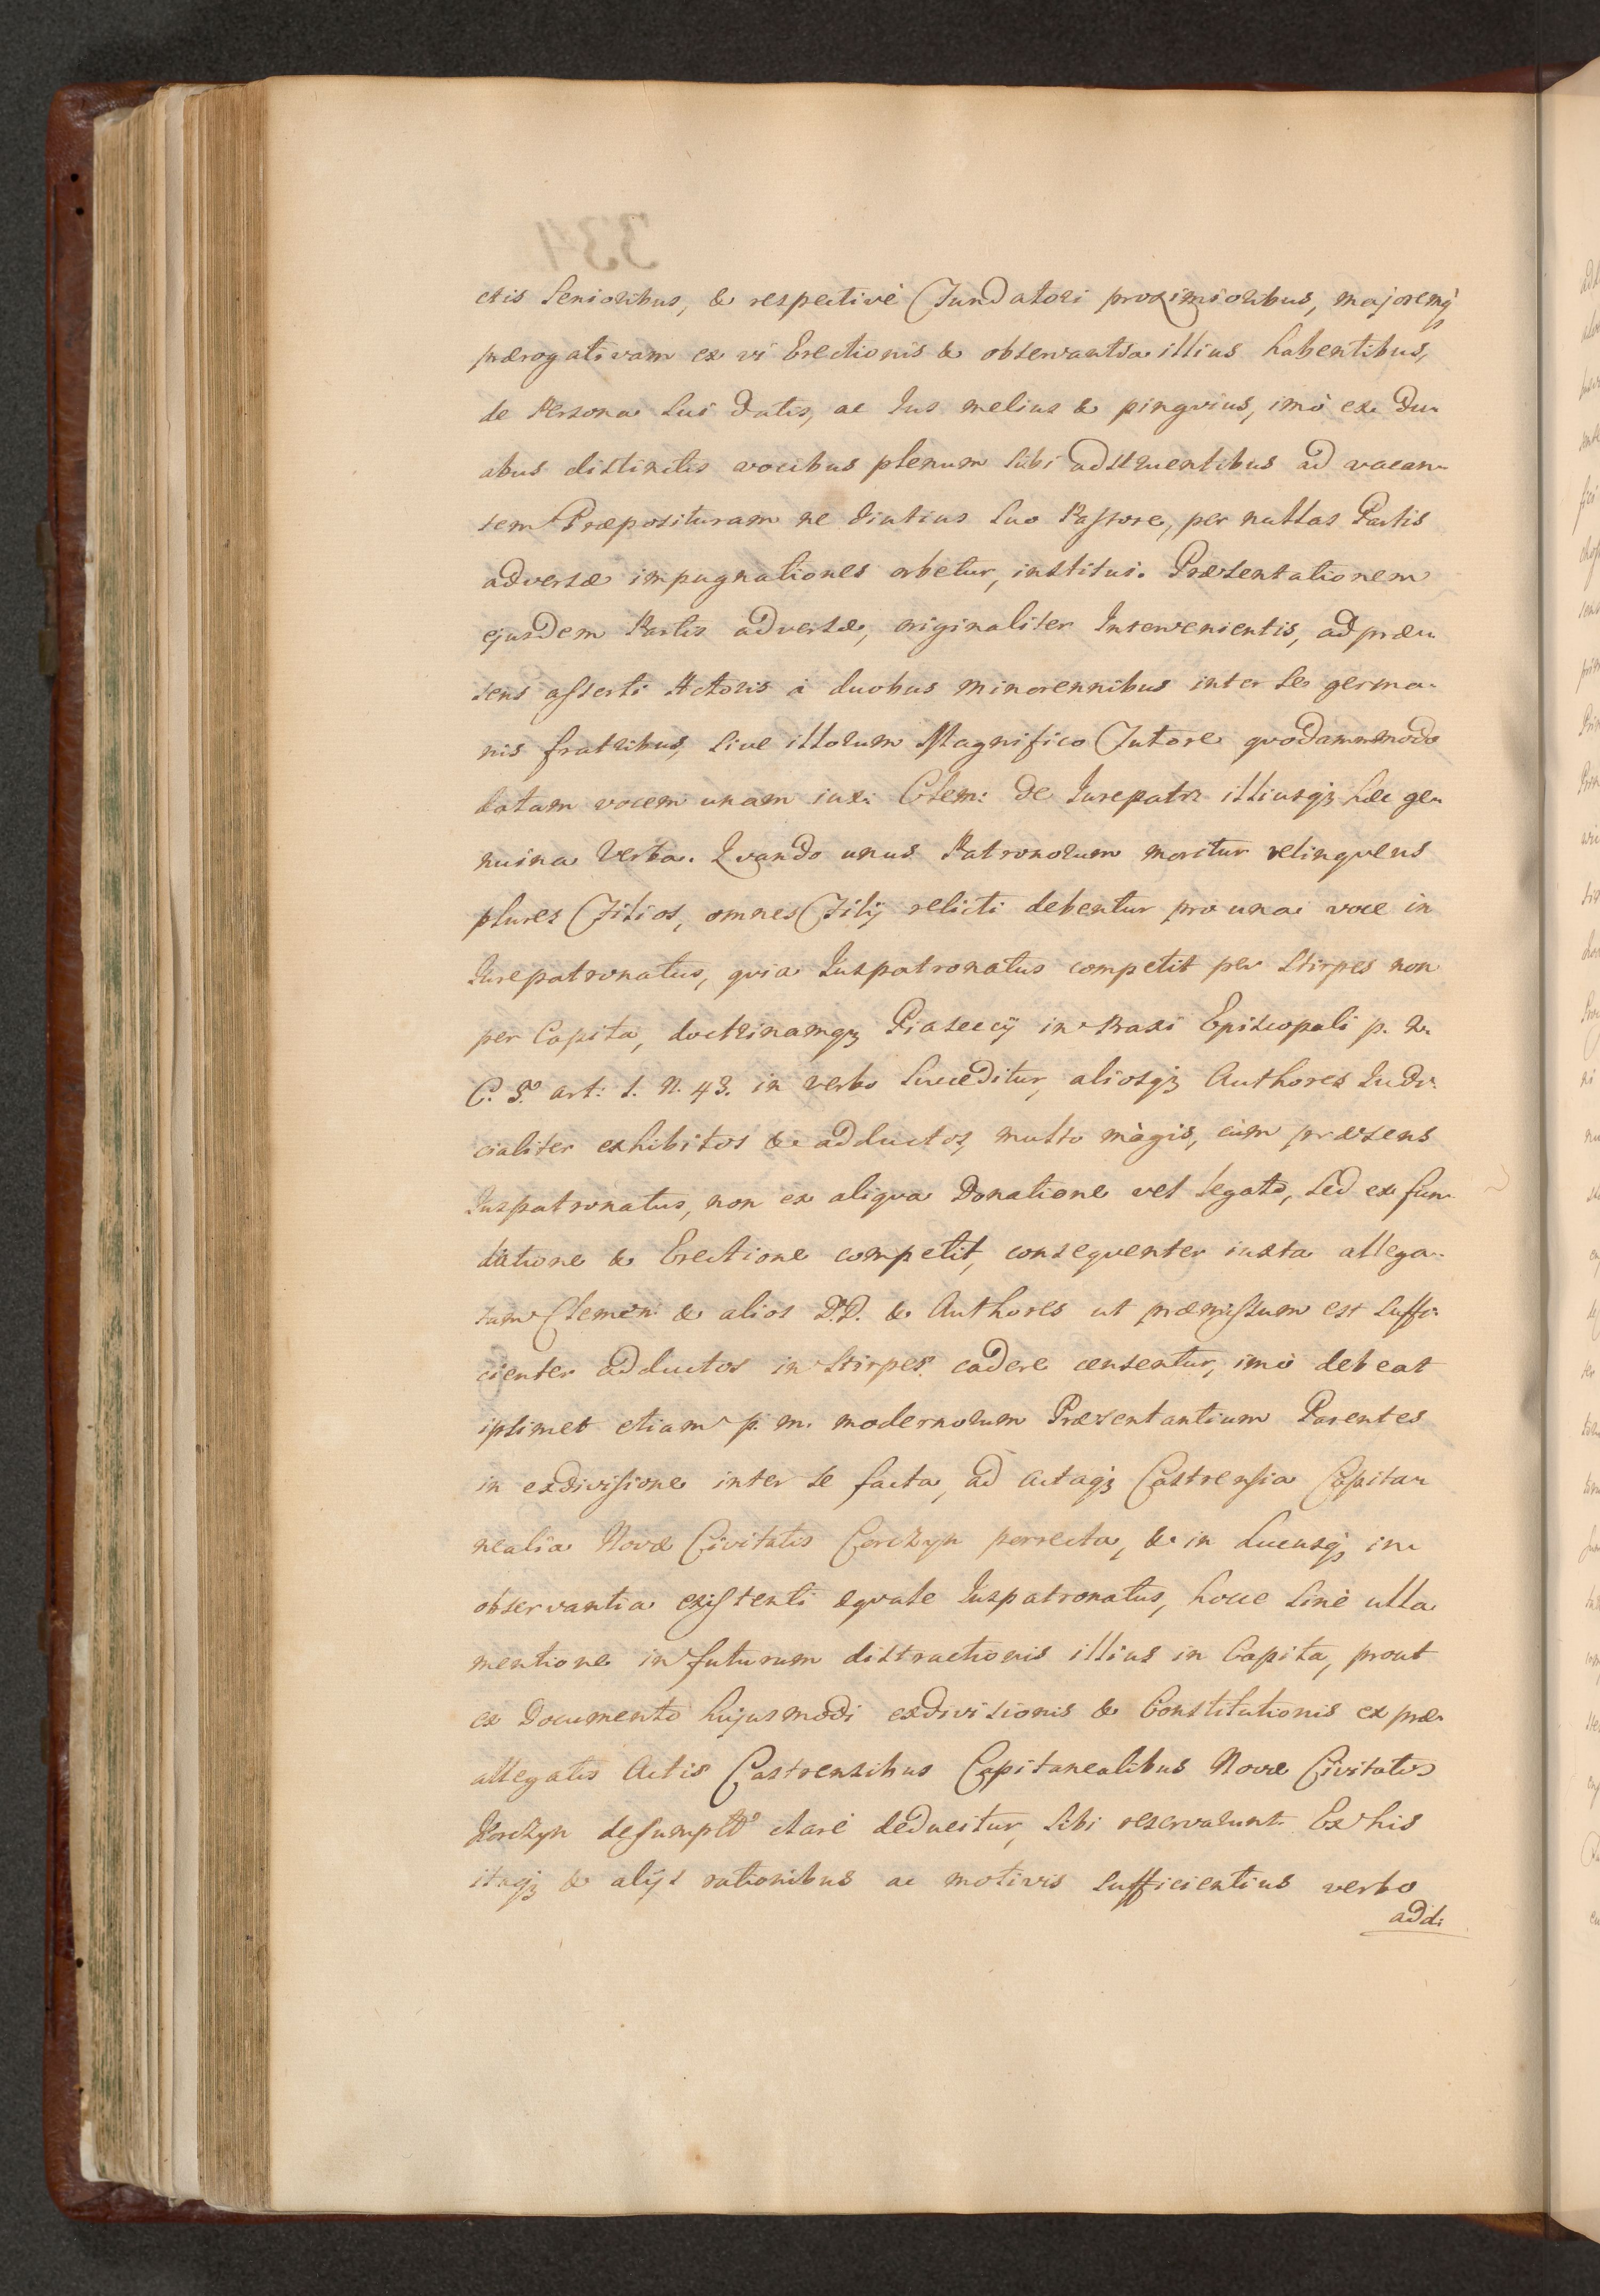 ctis Senioribus, & respectivè Fundatori proximioribus, majoremq;
prærogativam ex vi Erectionis & observantia illius habentibus,
de Persona Sui datis, ac Jus melius & pingvius, imò ex du-
abus distinctis vocibus plenum Sibi adstruentibus ad vacan-
tem Præposituram ne diutius Suo Pastore, per nullas Partis
adversæ impugnationes orbetur, institui. Præsentationem
ejusdem Partis adversæ, originaliter Intervenientis, ad præ-
sens asserti Actoris à duobus minorennibus inter Se germa-
nis fratribus, Sive illorum Magnifico Tutore qvodammodo
datam vocem unam iux: Clem: de Jurepatr illiusq; hæc ge-
nuina Verba. Qvando unus Patronorum moritur relinqvens
plures Filios, omnes Filij relicti debentur pro una voce in
Jurepatronatus, qvia Juspatronatus competit per Stirpes non
per Capita, doctrinamq; Piasecij in Praxi Episcopali p. 2.
C. 5º art: 1. N. 43. in verbo Succeditur, aliosq; Authores Judi-
cialiter exhibitos & adductos, multo màgis, cùm præsens
Juspatronatus, non ex aliqva Donatione vel Legato, Sed ex fun-
datione & Erectione competit, conseqventer iuxta allega-
tam Clemen: & alios D.D. & Authores ut præmissum est Suffi-
cienter adductos in Stirpes cadere censeatur, imò debeat
ipsimet etiam p. m. modernorum Præsentantium Parentes
in exdivisione inter Se facta, ad Actaq; Castrensia Capita-
nealia Novæ Civitatis Corczyn porrecta, & in Lucusq; in
observantia existenti æqvale Juspatronatus, hocce Sinè ulla
mentione in futurum distractionis illius in Capita, prout
ex Documento hujusmodi exdivisionis & Constitutionis ex præ-
allegatis Actis Castrensibus Capitanealibus Novæ Civitatis
Korczyn desumptº clarè deducitur, Sibi reservarunt. Ex his
itaq; & alijs rationibus ac motivis Sufficientius verbo
addi